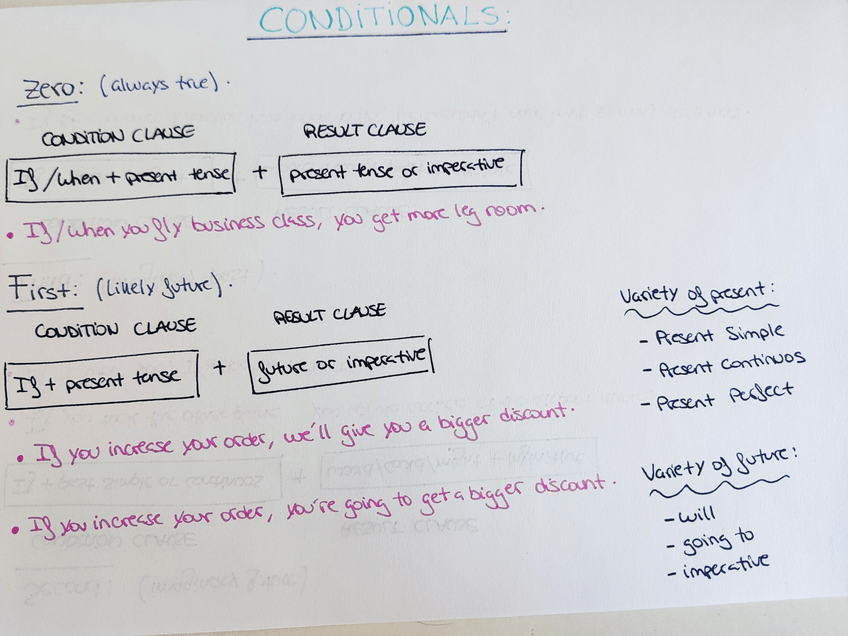 CONDITIONALS:
Zero: (always true).
CONDITION CLAUSE
RESULT CLAUSE
If/when + present tense + present tense or imperative
• If/when you fly business class, you get more leg room.
First: (Likely future).
CONDITION CLAUSE
RESULT CLAUSE
If + present tense + future or imperative
• If you increase your order, we'll give you a bigger discount.
• If you increase your order, you're going to get a bigger discount.
Variety of present:
- Present Simple
- Present Continuos
- Present Perfect
Variety of future:
- will
- going to
- imperative